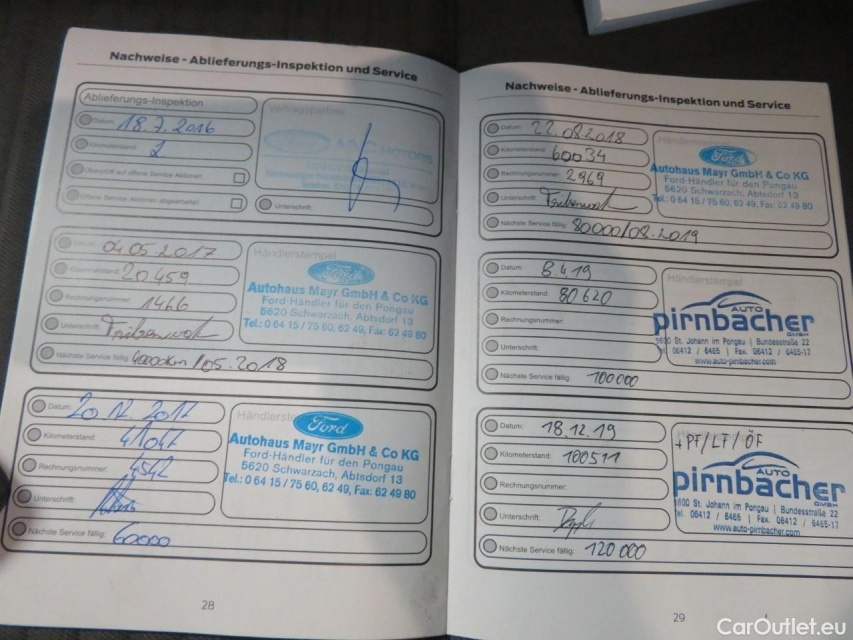 Nachweise - Ablieferungs-Inspektion und Service
Ablieferungs-Inspektion
Vertragspartner
Datum: 18.7.2016
Kilometerstand: 2
Überprüft auf offene Service Aktionen
Offene Service Aktionen abgearbeitet
Unterschrift
MOTORS
04.05.2017
Kilometerstand: 20459
Rechnungsnummer: 1466
Unterschrift:
Nächste Service fällig: 40000km/05.2018
Händlerstempel
Ford
Autohaus Mayr GmbH & Co KG
Ford-Händler für den Pongau
5620 Schwarzach, Abtsdorf 13
Tel.: 0 64 15 / 75 60, 62 49, Fax: 62 49 80
Datum: 20.12.2017
Kilometerstand: 41047
Rechnungsnummer: 4542
Unterschrift:
Nächste Service fällig: 60000
Ford
Autohaus Mayr GmbH & Co KG
Ford-Händler für den Pongau
5620 Schwarzach, Abtsdorf 13
Tel.: 0 64 15 / 75 60, 62 49, Fax: 62 49 80
28
Nachweise - Ablieferungs-Inspektion und Service
Datum: 22.08.2018
Kilometerstand: 60034
Rechnungsnummer: 2969
Unterschrift:
Nächste Service fällig: 80000/08.2019
Ford
Autohaus Mayr GmbH & Co KG
Ford-Händler für den Pongau
5620 Schwarzach, Abtsdorf 13
Tel.: 0 64 15 / 75 60, 62 49, Fax: 62 49 80
Datum: 8.4.19
Kilometerstand: 80620
Rechnungsnummer:
Unterschrift:
Nächste Service fällig: 100000
Händlerstempel
AUTO
pirnbacher
GmbH
5600 St. Johann im Pongau | Bundesstraße 22
Tel. 06412 / 6465 | Fax. 06412 / 6465-17
www.auto-pirnbacher.com
Datum: 18.12.19
Kilometerstand: 100511
Rechnungsnummer:
Unterschrift:
Nächste Service fällig: 120000
+PF/LF/ÖF
AUTO
pirnbacher
GmbH
5600 St. Johann im Pongau | Bundesstraße 22
Tel. 06412 / 6465 | Fax. 06412 / 6465-17
www.auto-pirnbacher.com
29
CarOutlet.eu